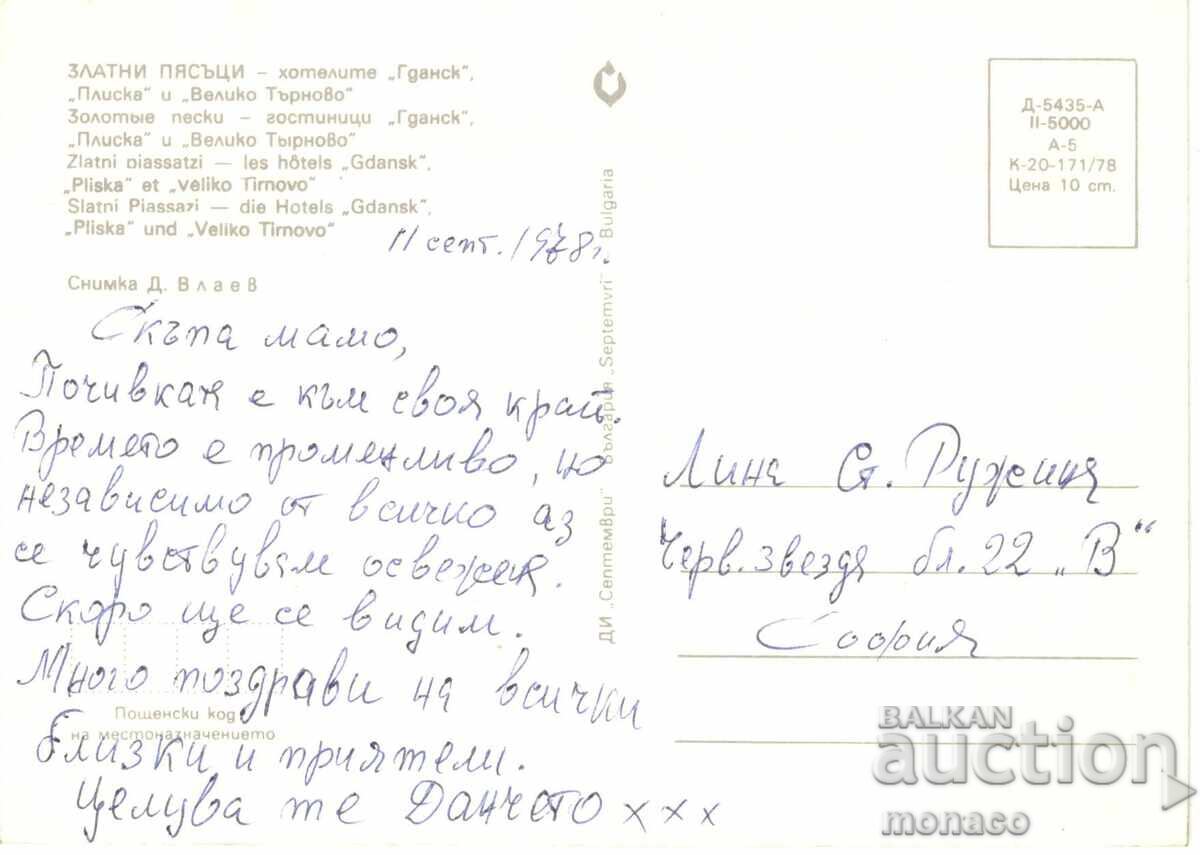 ЗЛАТНИ ПЯСЪЦИ – хотелите „Гданск“,
„Плиска“ и „Велико Търново“
Золотые пески – гостиницы „Гданск“,
„Плиска“ и „Велико Тырново“
Zlatni piassatzi — les hôtels „Gdansk“,
„Pliska“ et „Veliko Tirnovo“
Slatni Piassazi — die Hotels „Gdansk“,
„Pliska“ und „Veliko Tirnovo“
11 септ. 1978 г.
Снимка Д. Влаев
Скъпа мамо,
Почивката е към своя край.
Времето е променливо, но
независимо от всичко аз
се чувствувам освежена.
Скоро ще се видим.
Много поздрави на всички
близки и приятели.
Целува те Данчето x x x
Пощенски код
на местоназначението
ДИ „Септември“ България „Septemvri“ Bulgaria
Д-5435-А
II-5000
А-5
К-20-171/78
Цена 10 ст.
Лина Ст. Ружина
Черв. звезда бл. 22 „В“
София
BALKAN
auction
monaco